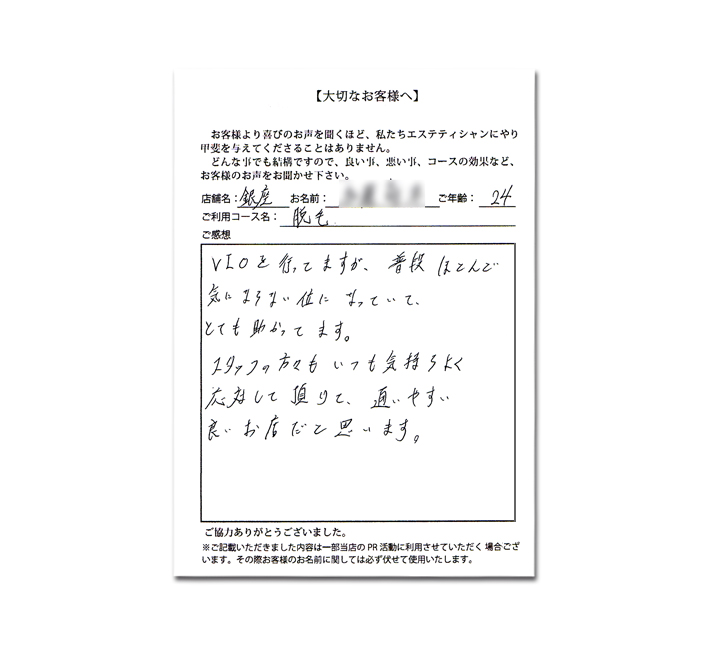 【大切なお客様へ】
お客様より喜びのお声を聞くほど、私たちエステティシャンにやり
甲斐を与えてくださることはありません。
どんな事でも結構ですので、良い事、悪い事、コースの効果など、
お客様のお声をお聞かせ下さい。
店舗名：銀座 お名前： ご年齢：24
ご利用コース名：脱毛
ご感想
VIOを行ってますが、普段ほとんど
気にならない位になっていて、
とても助かってます。
スタッフの方々もいつも気持ちよく
応対して頂けて、通いやすい
良いお店だと思います。
ご協力ありがとうございました。
※ご記載いただきました内容は一部当店のPR活動に利用させていただく場合ござ
います。その際お客様のお名前に関しては必ず伏せて使用いたします。